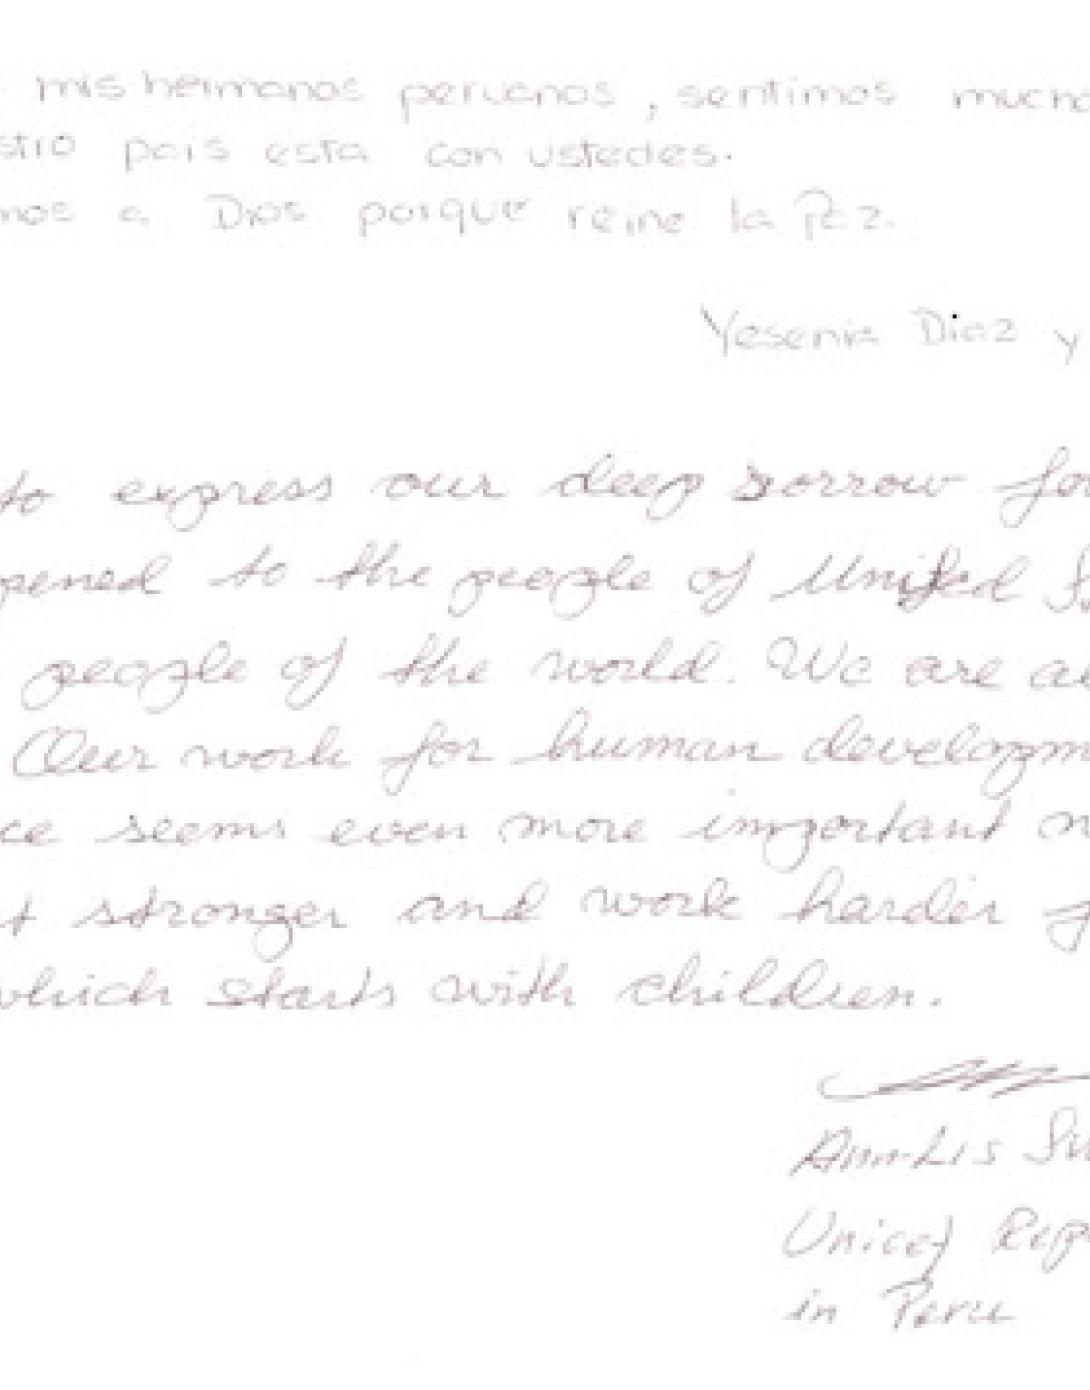 mis hermanos peruanos, sentimos mucho
stro pais esta con ustedes.
mos a Dios porque reine la Paz.
Yesenia Diaz y
to express our deep sorrow for
pened to the people of United S
people of the world. We are al
Our work for human developm
ce seems even more important n
t stronger and work harder f
which starts with children.
Ann-Lis Sv
Unicef Rep
in Peru